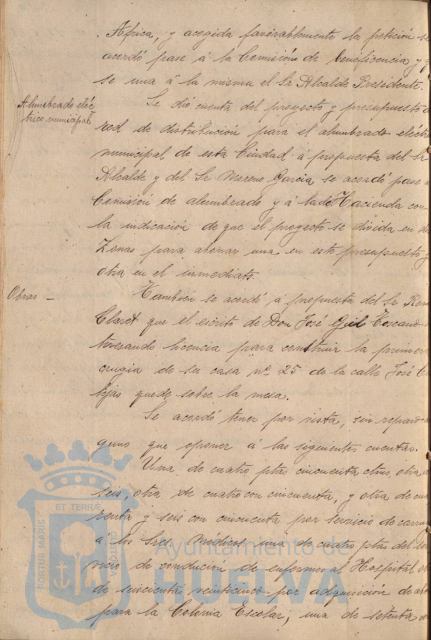 Africa, y acogida favorablemente la petición se
acordó pase á la Comisión de Beneficencia y q
se una á la misma el Sr Alcalde Presidente.
Alumbrado eléc
trico municipal.
Se dió cuenta del proyecto y presupuesto d
red de distribución para el alumbrado eléctr
municipal de esta Ciudad á propuesta del Sr
Alcalde y del Sr Moreno Garcia se acordó pase á
Comisión de alumbrado y á la de Hacienda con
la indicación de que el proyecto se divida en
Zonas para abonar una en este presupuesto y
otra en el inmediato.
Obras -
También se acordó á propuesta del Sr
Claret que el escrito de Don José Gil
interesando licencia para construir la primera
crugia de su casa nº 25 de la calle José
quede sobre la mesa.
Se acordó tener por vista, sin reparo
guno que oponer á las siguientes cuentas.
Una de cuatro ptas cincuenta ctms, otra
seis, otra de cuatro con cincuenta, y otra de
renta y seis con cincuenta por servicio de
á los Sres. Médicos una de cuatro ptas del
cio de conducción de enfermos al Hospital
de cincuenta veinticinco por adquisición de
para la Colonia Escolar, una de setenta
ET TERRÆ
PORTUS MARIS
Ayuntamiento de
HUELVA